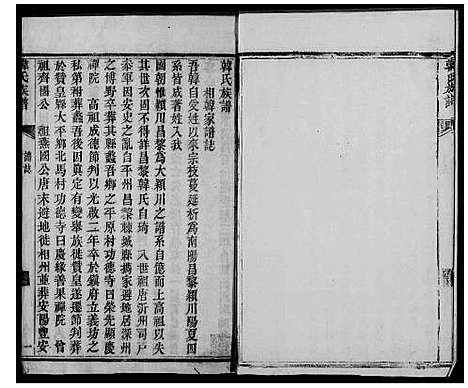 韓氏族譜
相韓家譜誌
吾韓自受姓以來宗枝蔓延析為南陽昌黎潁川陽夏四
系皆咸著姓入我
國朝惟潁川昌黎為大潁川之譜系自億而上高祖以失
其世次不得詳昌黎韓氏自琦 八世祖唐沂州司戶
參軍因安史之亂自平州昌黎棘城縣攜家避地居深州
之博野卒葬其縣蠡吾鄉之平原村功德寺曰榮先顯慶
禪院 高祖咸德節判以光啟二年卒於鎮府立義坊之
私第祔葬蠡吾後因真定有變舉族徙贊皇遂遷節判葬
於贊皇縣大平鄉北馬村功德寺曰慶緣善果禪院 曾
祖齊國公 祖燕國公唐末避地徙相州並葬安陽豐安
韓氏族譜
譜誌
一